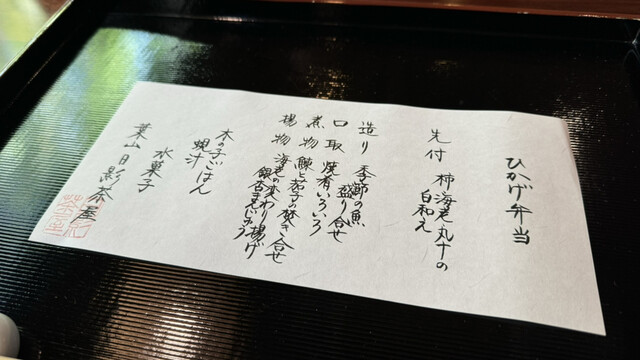 ひかげ弁当
先付 柿海老丸十の
白和え
造り 季節の魚
盛り合せ
口取 焼肴いろいろ
煮物 鰊と茄子の焚き合せ
揚物 海老の変わり揚げ
銀杏まんじゅう
木の子ごはん
蜆汁
水菓子
葉山 日影茶屋